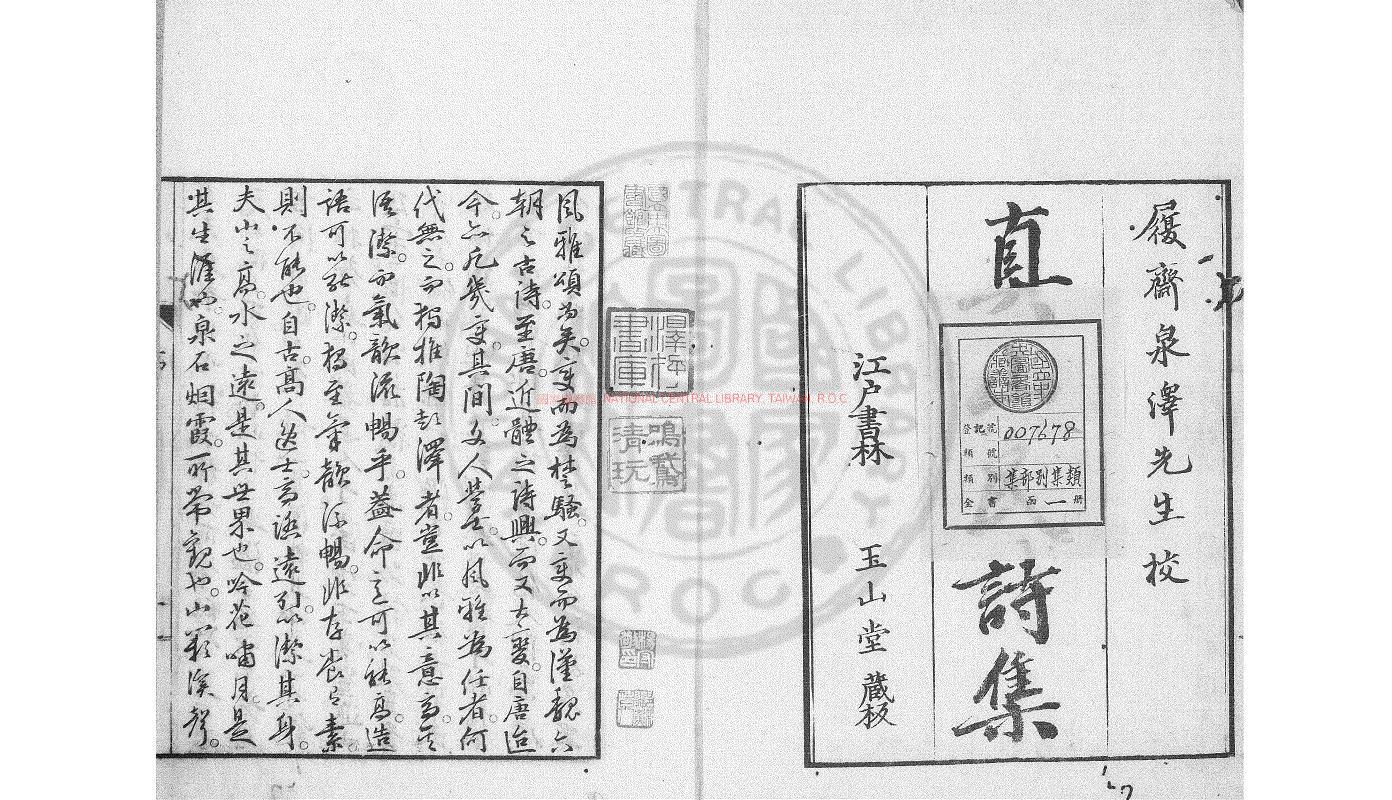 履齋泉澤先生校
直
詩集
江戶書林 玉山堂 藏板
登記號 007678
類號
類別 集部別集類
全書 函 一 冊
國家圖書館 NATIONAL CENTRAL LIBRARY, TAIWAN, R.O.C
CENTRAL LIBRARY
ROC
書庫
鳴鶴
清玩
風雅頌尚矣變而為楚騷又變而為漢魏六
朝之古詩至唐近體之詩興而又大變自唐迨
今亦凡幾變其間文人藝士以風雅為任者何
代無之而獨推陶彭澤者豈非以其意高其
語潔而氣韻流暢乎蓋命意可以能高造
語可以能潔獨至氣韻流暢非存養之素
則不能也自古高人逸士高論遠引以潔其身
夫山之高水之遠是其世界也吟花嘯月是
其生涯也泉石烟霞所常觀也山靄溪聲